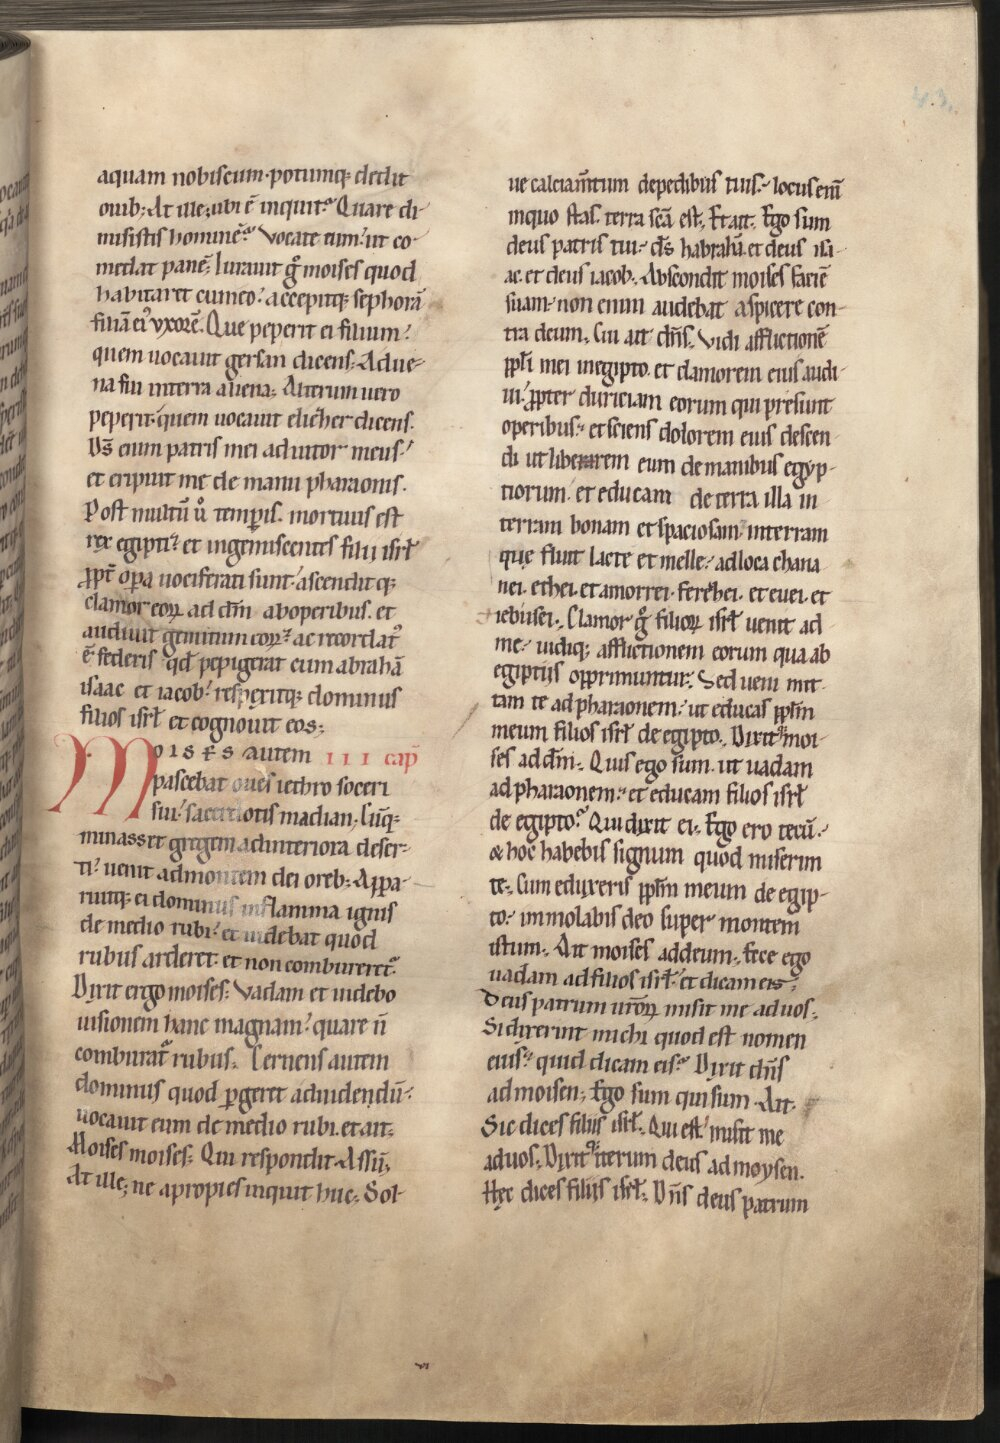 43.
aquam nobiscum. potumq; dedit
ouib; At ille; ubi ē inquit? Quare di
misistis hominē? Vocate eum; ut co-
medat panē; Iurauit g̊ moises quod
habitaret cum eo; accepitq; sephorā
filiā ei᾽ uxorē. Que peperit ei filium;
quem uocauit gersan dicens; Adue-
na fui in terra aliena; Alterum uero
peperit; quem uocauit eliezer dicens.
Ds̄ enim patris mei adiutor meus;
et eripuit me de manu pharaonis.
Post multū ů temp̄is. mortuus est
rex egipti; et ingemiscentes filij isrł
ꝓpt̄ oꝑa uociferati sunt; ascenditq;
clamor eoꝝ ad dm̄ ab operibus. et
audiuit gemitum eoꝝ; ac recordat᾽
ē federis qd̄ pepigerat cum abrahā
isaac et iacob; respexitq; dominus
filios isrł et cognouit eos;
Moises autem III cap̄
pascebat oues iethro soceri
sui; sacerdotis madian; Cūq;
minasset gregem ad interiora deser-
ti; uenit ad montem dei oreb; Appa-
ruitq; ei dominus in flamma ignis
de medio rubi; et uidebat quod
rubus arderet; et non combureret᾽.
Dixit ergo moises; Vadam et uidebo
uisionem hanc magnam; quare n̄
comburat᾽ rubus. Cernens autem
dominus quod ꝑgeret ad uidendū;
uocauit eum de medio rubi. et ait;
Moises moises; Qui respondit. Assū;
At ille; ne apropies inquit huc; Sol-
ue calciam̄tum de pedibus tuis; locus enī
in quo stas. terra scā est; Et ait; Ego sum
deus patris tui; ds̄ habrahā. et deus isa-
ac. et deus iacob; Abscondit moises faciē
suam; non enim audebat aspicere con-
tra deum; Cui ait dn̄s; Vidi afflictionē
ppłi mei in egipto. et clamorem eius audi-
ui; ꝓpter duriciam eorum qui presunt
operibus; et sciens dolorem eius descen
di ut liberarem eum de manibus egyp-
tiorum; et educam de terra illa in
terram bonam et spaciosam; in terram
quę fluit lacte et melle; ad loca chana
nei. ethei. et amorrei. ferezei. et euei. et
iebusei; Clamor g̊ filioꝝ isrł uenit ad
me; uidiq; afflictionem eorum qua ab
egiptijs opprimuntur; Sed ueni mit-
tam te ad pharaonem; ut educas ppłm
meum filios isrł de egipto; Dixitq; moi-
ses ad dm̄; Quis ego sum. ut uadam
ad pharaonem; et educam filios isrł
de egipto? Qui dixit ei; Ego ero tecū;
& hoc habebis signum quod miserim
te; Cum eduxeris ppłm meum de egip-
to; immolabis deo super montem
istum; Ait moises ad deum; Ecce ego
uadam ad filios isrł et dicam eis;
Deus patrum ur̄oꝝ misit me ad uos;
Si dixerint michi quod est nomen
eius; quid dicam eis? Dixit dn̄s
ad moisen; Ego sum qui sum. Ait.
Sic dices filiis isrł; Qui est misit me
ad uos; Dixitq; iterum deus ad moysen.
Hęc dices filijs isrł; Dn̄s deus patrum